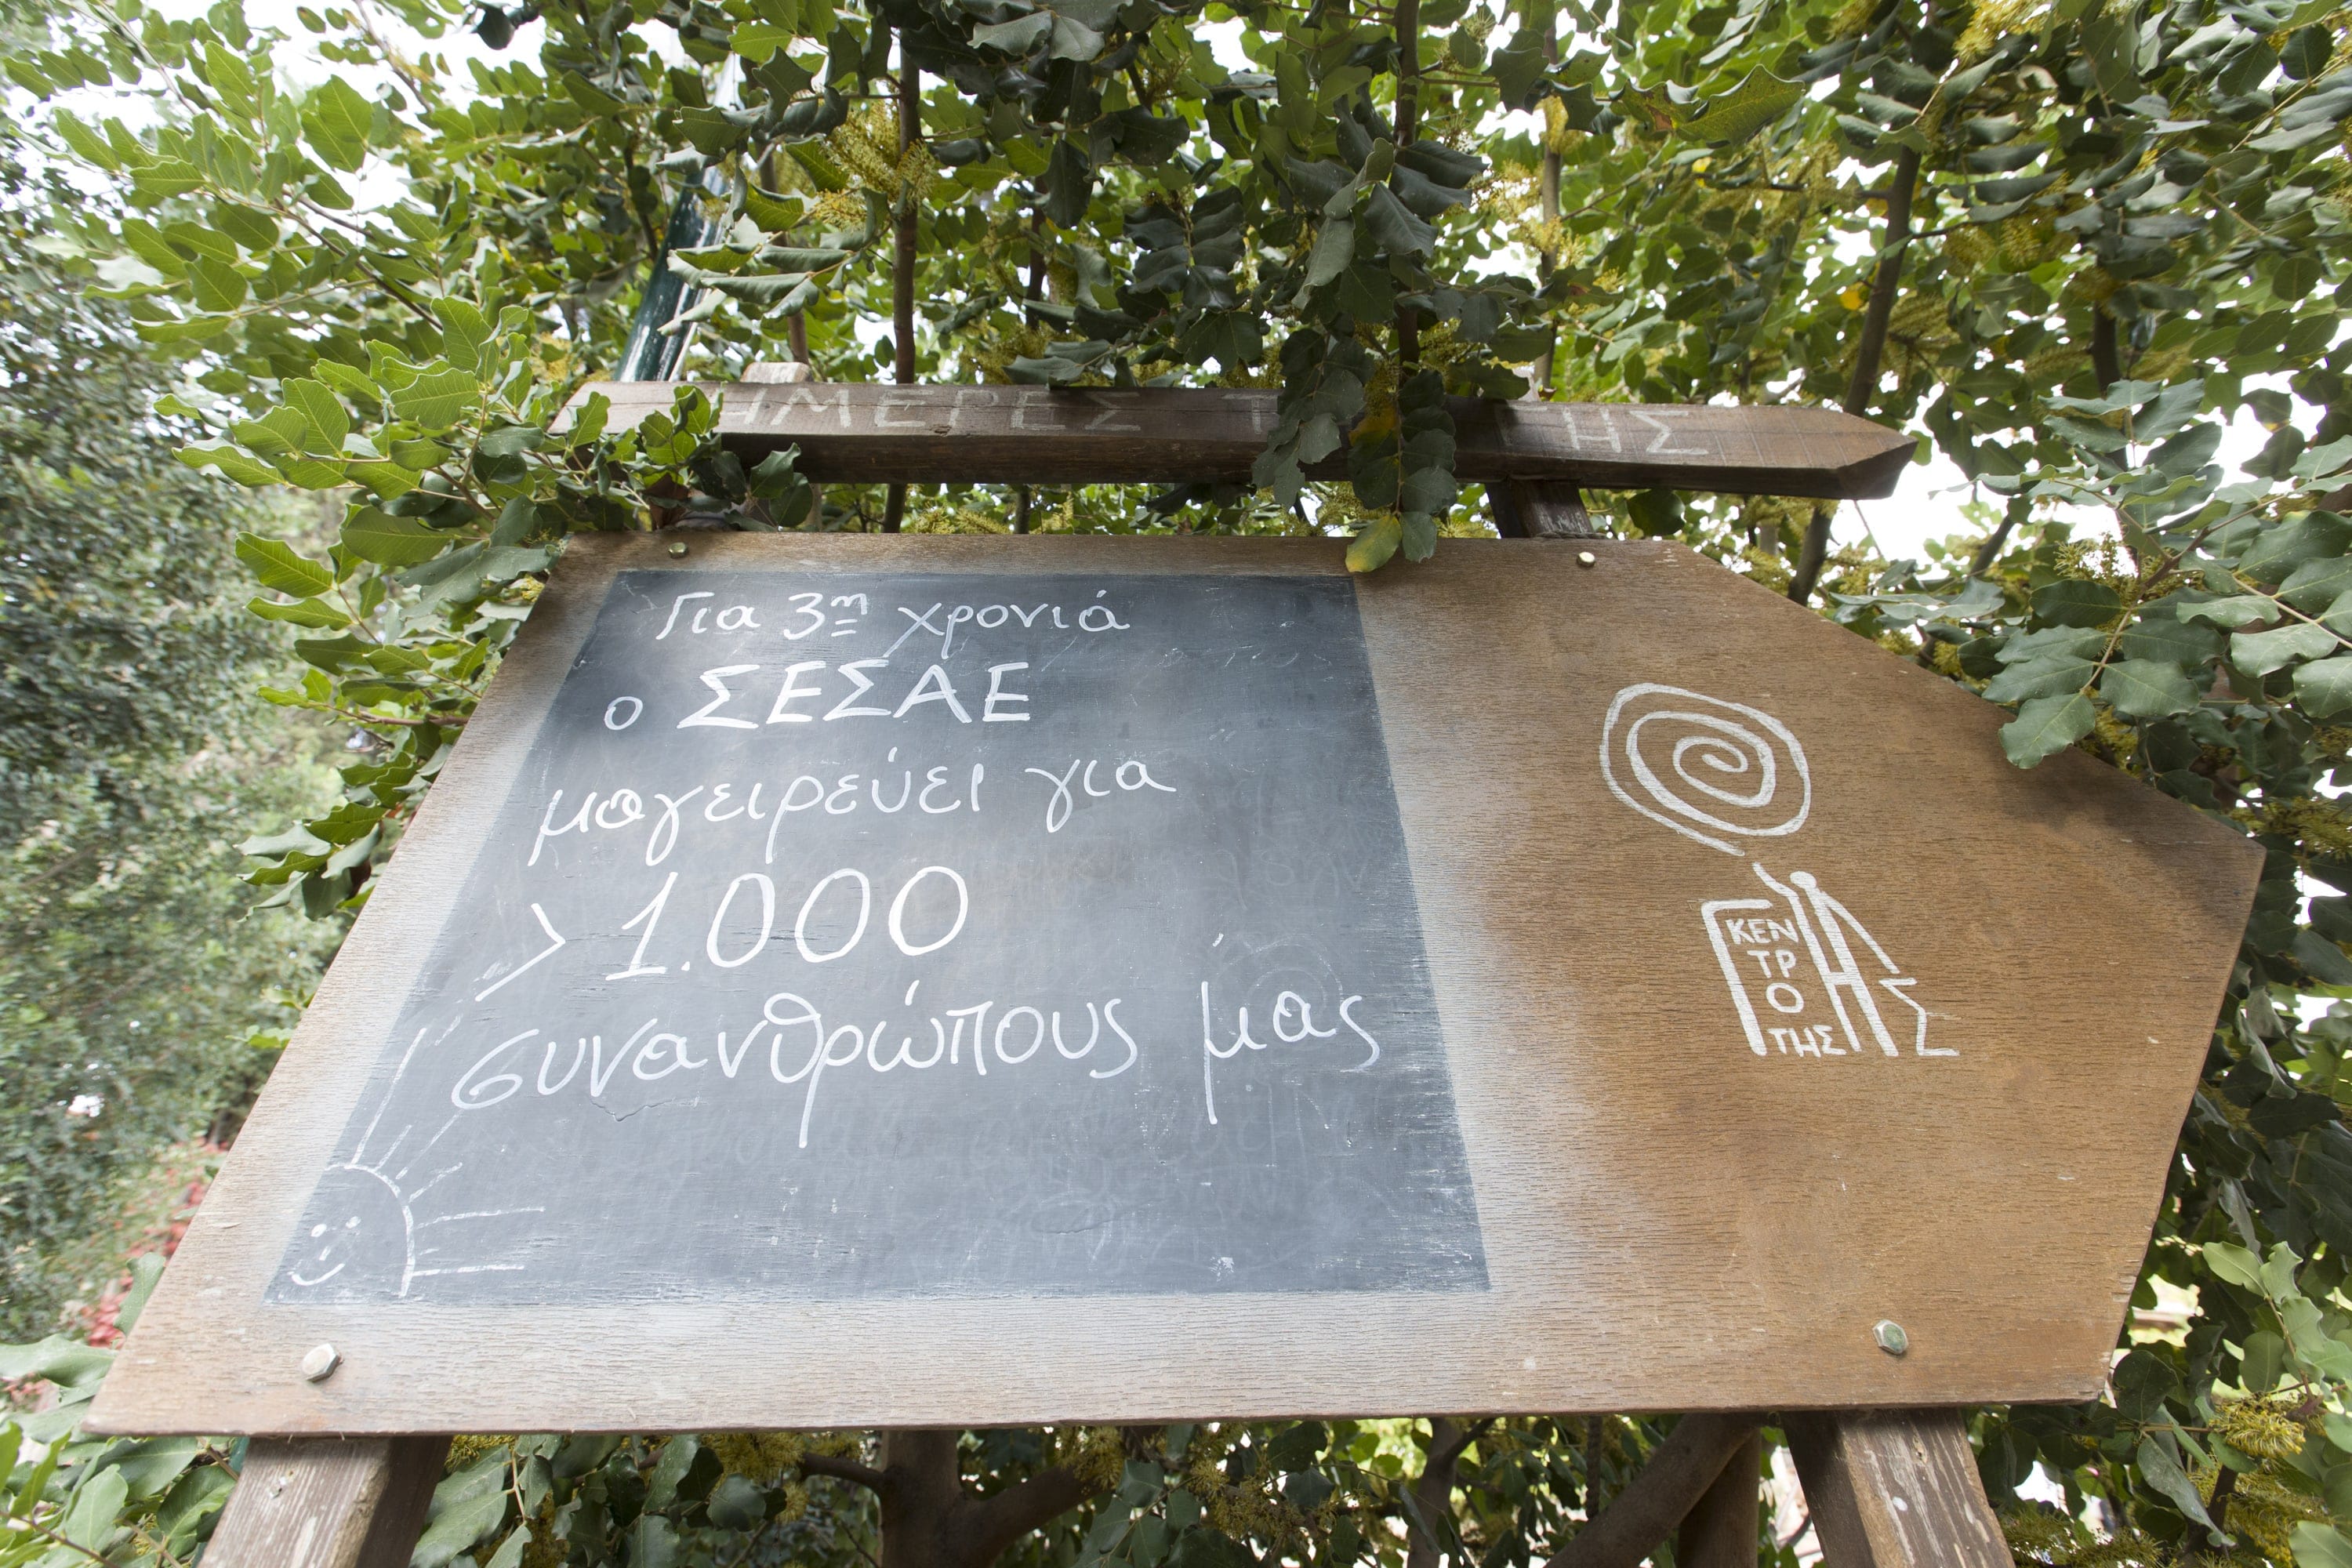 ΗΜΕΡΕΣ ΓΗΣ
Για 3η χρονιά
ο ΣΕΣΑΕ
μαγειρεύει για
> 1.000
συνανθρώπους μας
ΚΕΝ
ΤΡΟ
ΤΗΣ
ΓΗΣ